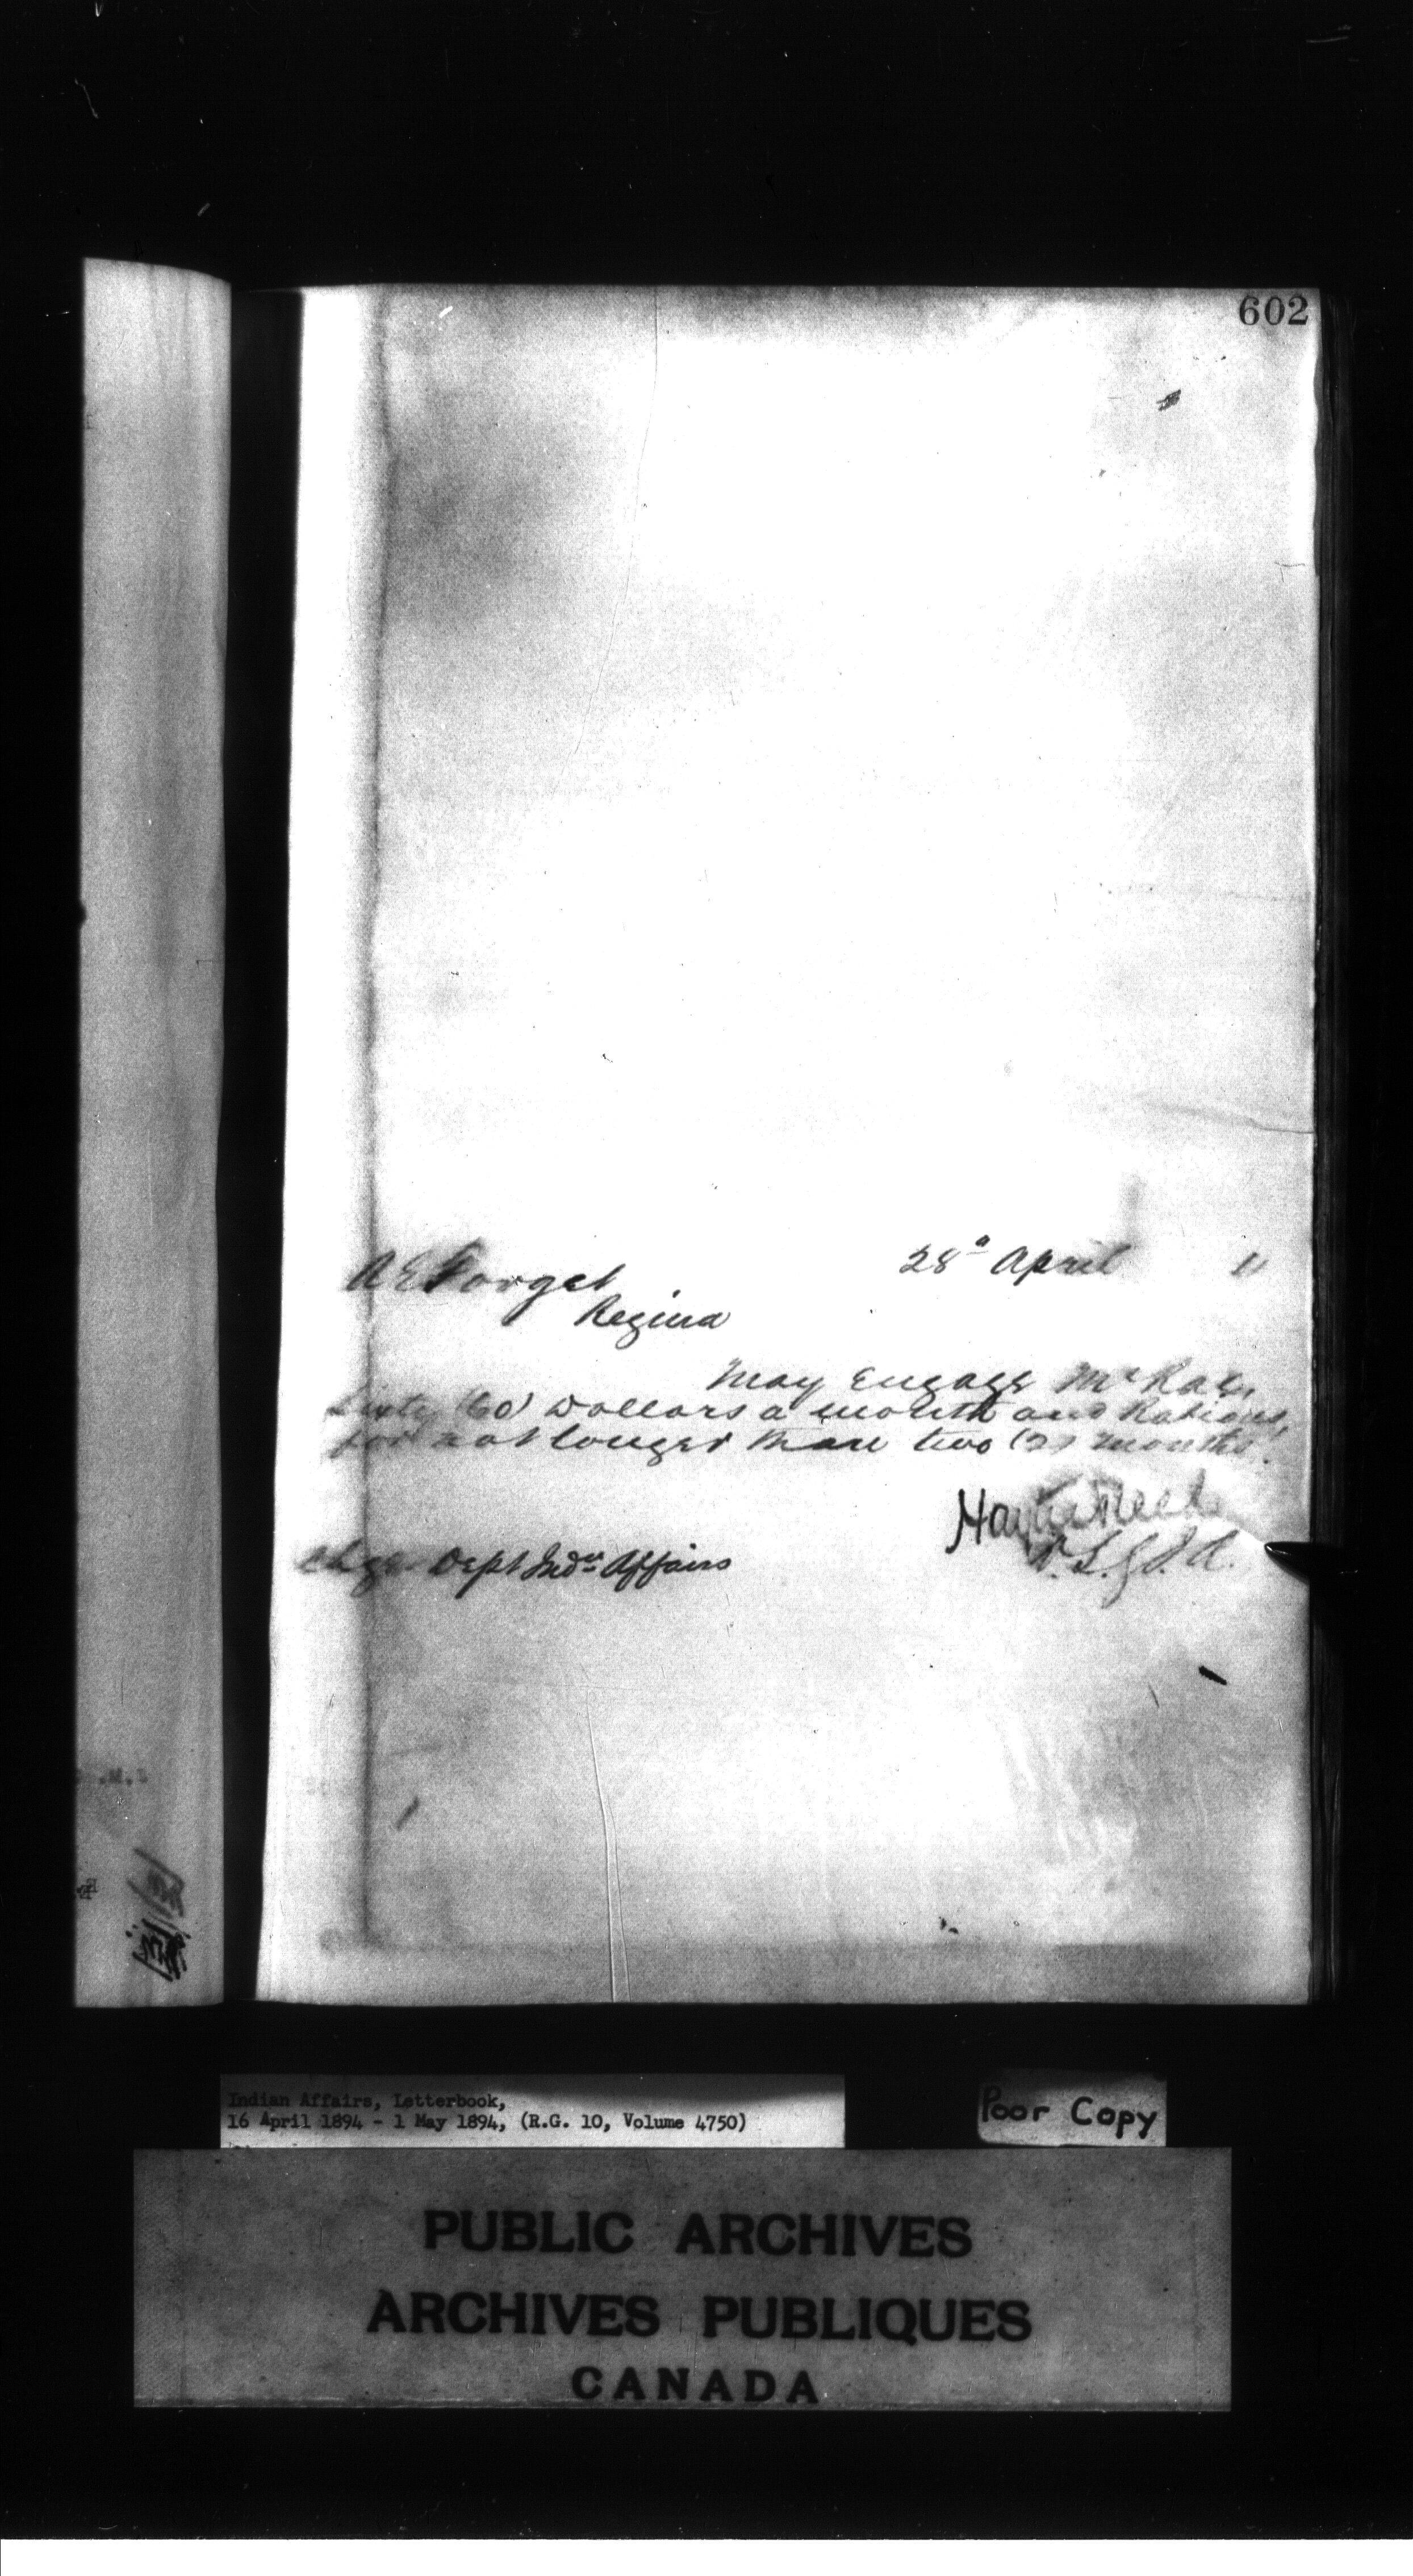 602
28ᵃ April "
A E Forget
Regina
May Engage McRae,
Sixty (60) Dollars a month and Rations,
for not longer than two (2) months.
Hayter Reed
D.S.G.I.A.
Chge Dept Indⁿ Affairs
Indian Affairs, Letterbook,
16 April 1894 - 1 May 1894, (R.G. 10, Volume 4750)
Poor Copy
PUBLIC ARCHIVES
ARCHIVES PUBLIQUES
CANADA